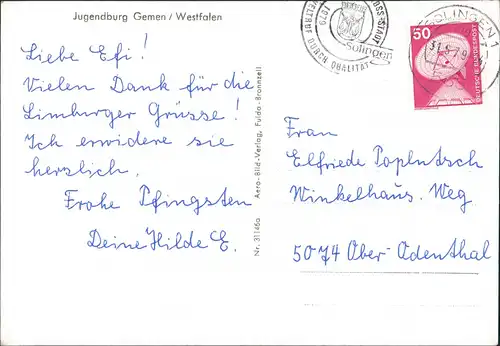 Jugendburg Gemen / Westfalen
Liebe Efi!
Vielen Dank für die
Limburger Grüsse!
Ich erwidere sie
herzlich.
Frohe Pfingsten
Deine Hilde E.
Nr. 31146a Aero-Bild-Verlag, Fulda-Bronnzell
WELTRUF DURCH QUALITÄT
Solingen
SOLINGEN 1
50
DEUTSCHE BUNDESPOST
Frau
Elfriede Poplutsch
Winkelhaus. Weg
5074 Ober-Odenthal